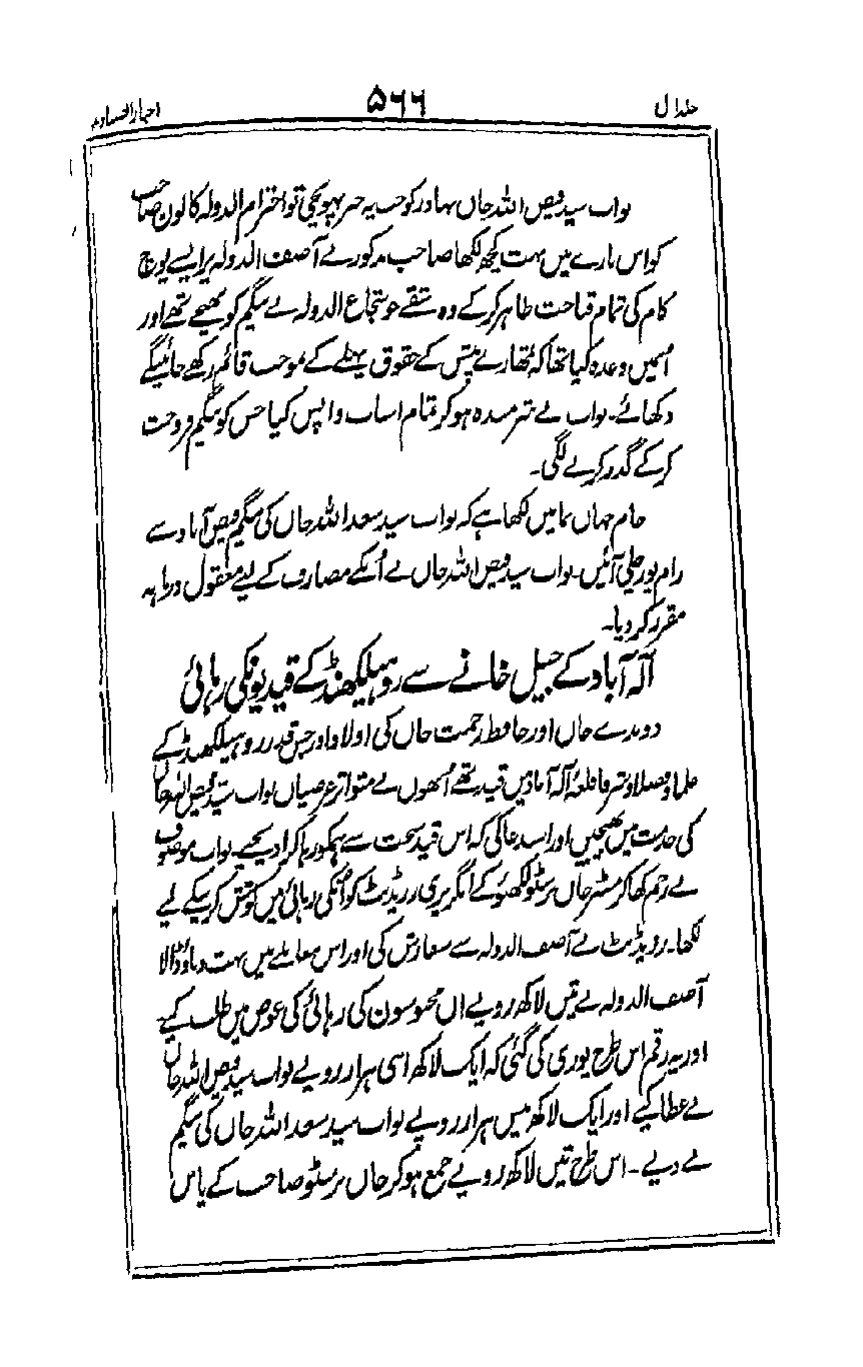 جلد اول ۵۶۶ اخبار الصنادید
نواب سید فیض اللہ خاں بہادر کو جب یہ خبر پہونچی تو احترام الدولہ کالون صاحب
کو اس بارے میں بہت کچھ لکھا صاحب مذکور نے آصف الدولہ پر ایسے پوچ
کام کی تمام قباحت ظاہر کرکے وہ شقے جو شجاع الدولہ نے بیگم کو بھیجے تھے اور
اُنمیں وعدہ کیا تھا کہ تمھارے حقوق پہلے کے موجب قائم رکھے جائینگے
دکھائے۔ نواب نے شرمندہ ہوکر تمام اسباب واپس کیا جس کو بیگم فروخت
کرکے گذر کرنے لگی۔
جام جہاں نما میں لکھا ہے کہ نواب سید سعد اللہ خاں کی بیگم فیض آباد سے
رام پور چلی آئیں۔ نواب سید فیض اللہ خاں نے اُنکے مصارف کے لیے معقول درماہہ
مقرر کر دیا۔
آلہ آباد کے جیل خانے سے روہیلکھنڈ کے قیدیونکی رہائی
دوندے خاں اور حافظ رحمت خاں کی اولاد اور جس قدر روہیلکھنڈ کے
علما و فضلا و شرفا قلعۂ آلہ آباد میں قید تھے اُنھوں نے متواتر عرضیاں نواب سید فیض اللہ خاں
کی خدمت میں بھیجیں اور استدعا کی کہ اس قید سخت سے ہمکو رہا کرا دیجیے نواب موصوف
نے رحم کھاکر مسٹر جاں برسٹو لکھنؤ کے انگریزی رزیڈنٹ کو اُنکی رہائی میں کوشش کرنیکے لیے
لکھا۔ رزیڈنٹ نے آصف الدولہ سے سفارش کی اور اس معاملے میں بہت دباؤ ڈالا
آصف الدولہ نے تین لاکھ روپے ان محبوسون کی رہائی کی عوض میں طلب کیے۔
اور یہ رقم اس طرح پوری کی گئی کہ ایک لاکھ اسی ہزار روپے نواب سید فیض اللہ خاں
نے عطا کیے اور ایک لاکھ بیس ہزار روپے نواب سید سعد اللہ خاں کی بیگم
نے دیے۔ اس طرح تین لاکھ روپے جمع ہوکر جاں برسٹو صاحب کے پاس